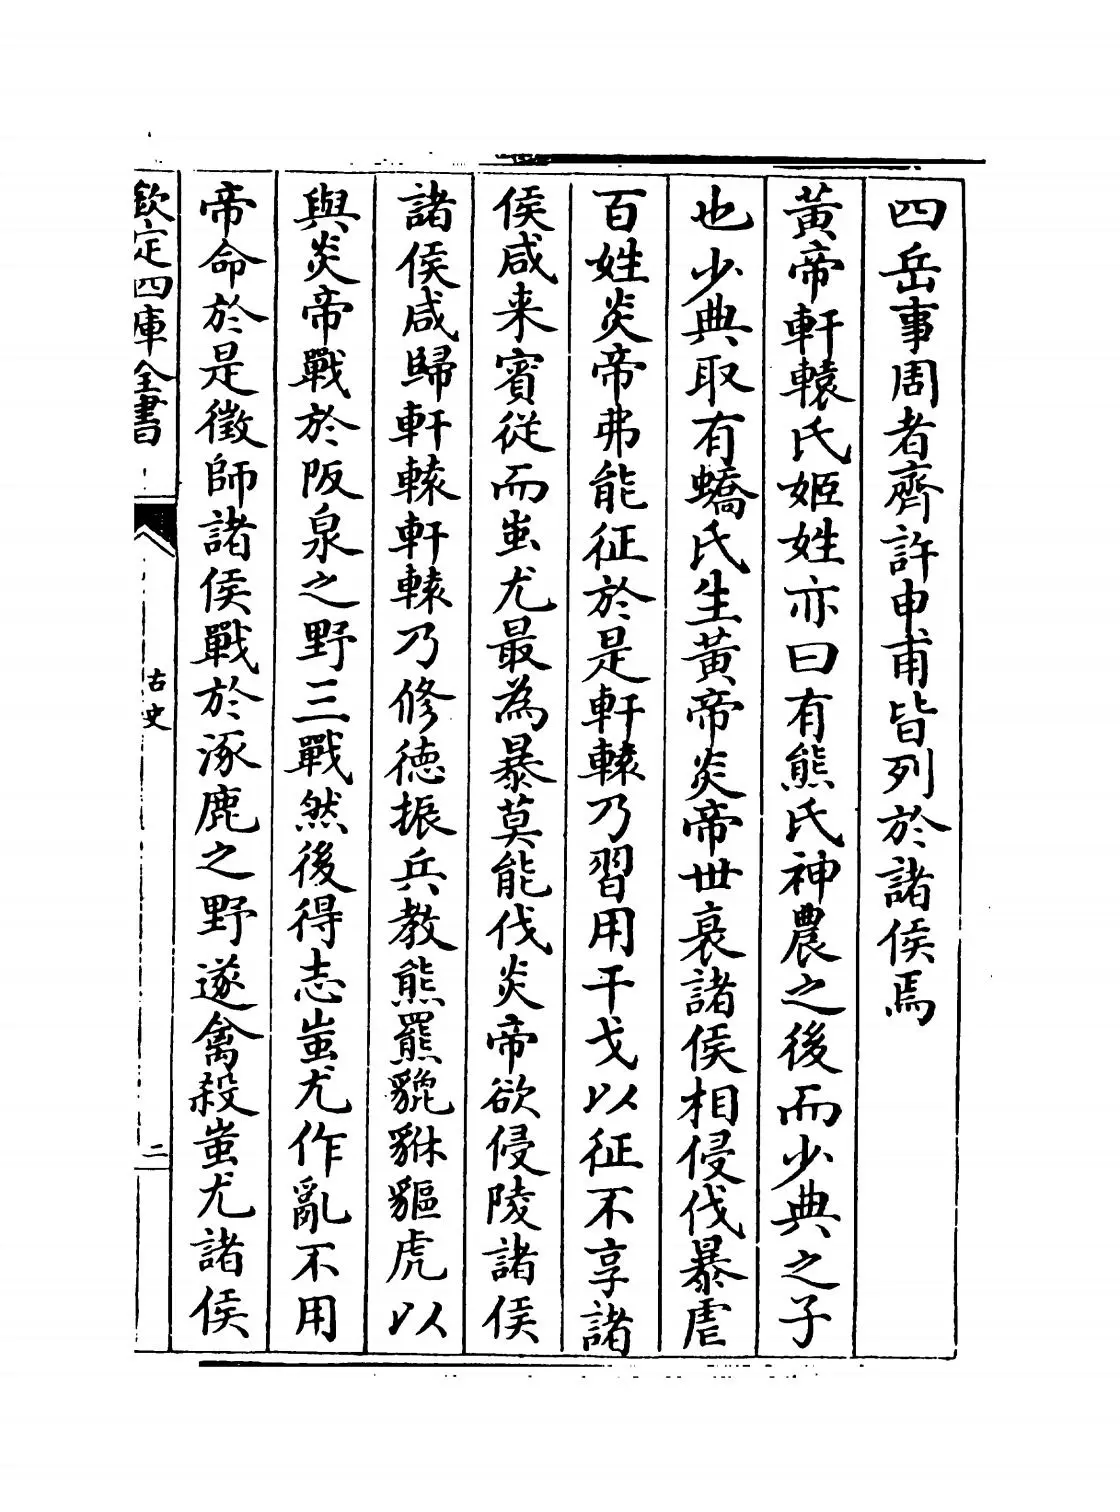 四岳事周者齊許申甫皆列於諸侯焉
黃帝軒轅氏姬姓亦曰有熊氏神農之後而少典之子
也少典取有蟜氏生黃帝炎帝世衰諸侯相侵伐暴虐
百姓炎帝弗能征於是軒轅乃習用干戈以征不享諸
侯咸来賓從而蚩尤最為暴莫能伐炎帝欲侵陵諸侯
諸侯咸歸軒轅軒轅乃修德振兵教熊羆貔貅貙虎以
與炎帝戰於阪泉之野三戰然後得志蚩尤作亂不用
帝命於是徵師諸侯戰於涿鹿之野遂禽殺蚩尤諸侯
欽定四庫全書
古史
二